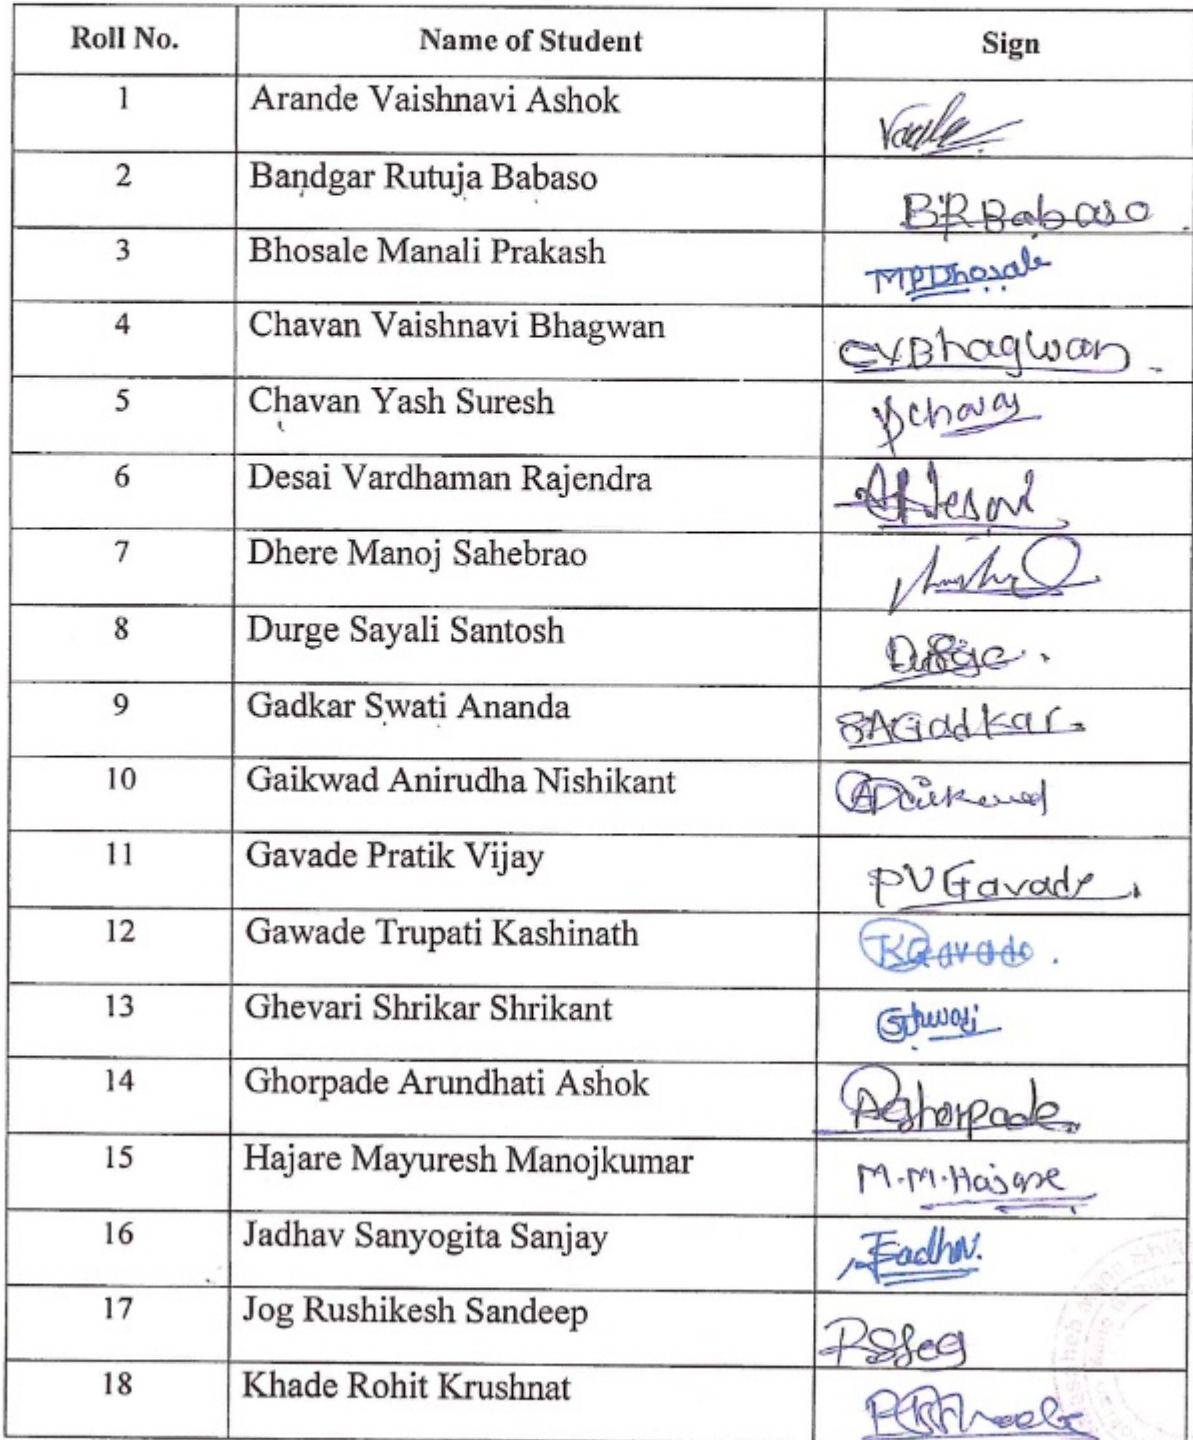 Roll No. Name of Student Sign
1 Arande Vaishnavi Ashok
2 Bandgar Rutuja Babaso BRBabaso
3 Bhosale Manali Prakash MPBhosale
4 Chavan Vaishnavi Bhagwan CVBhagwan
5 Chavan Yash Suresh YChavan
6 Desai Vardhaman Rajendra
7 Dhere Manoj Sahebrao
8 Durge Sayali Santosh Durge
9 Gadkar Swati Ananda SAGadkar
10 Gaikwad Anirudha Nishikant
11 Gavade Pratik Vijay PVGavade
12 Gawade Trupati Kashinath
13 Ghevari Shrikar Shrikant
14 Ghorpade Arundhati Ashok AGhorpade
15 Hajare Mayuresh Manojkumar M.M.Hajare
16 Jadhav Sanyogita Sanjay Jadhav.
17 Jog Rushikesh Sandeep RSJog
18 Khade Rohit Krushnat